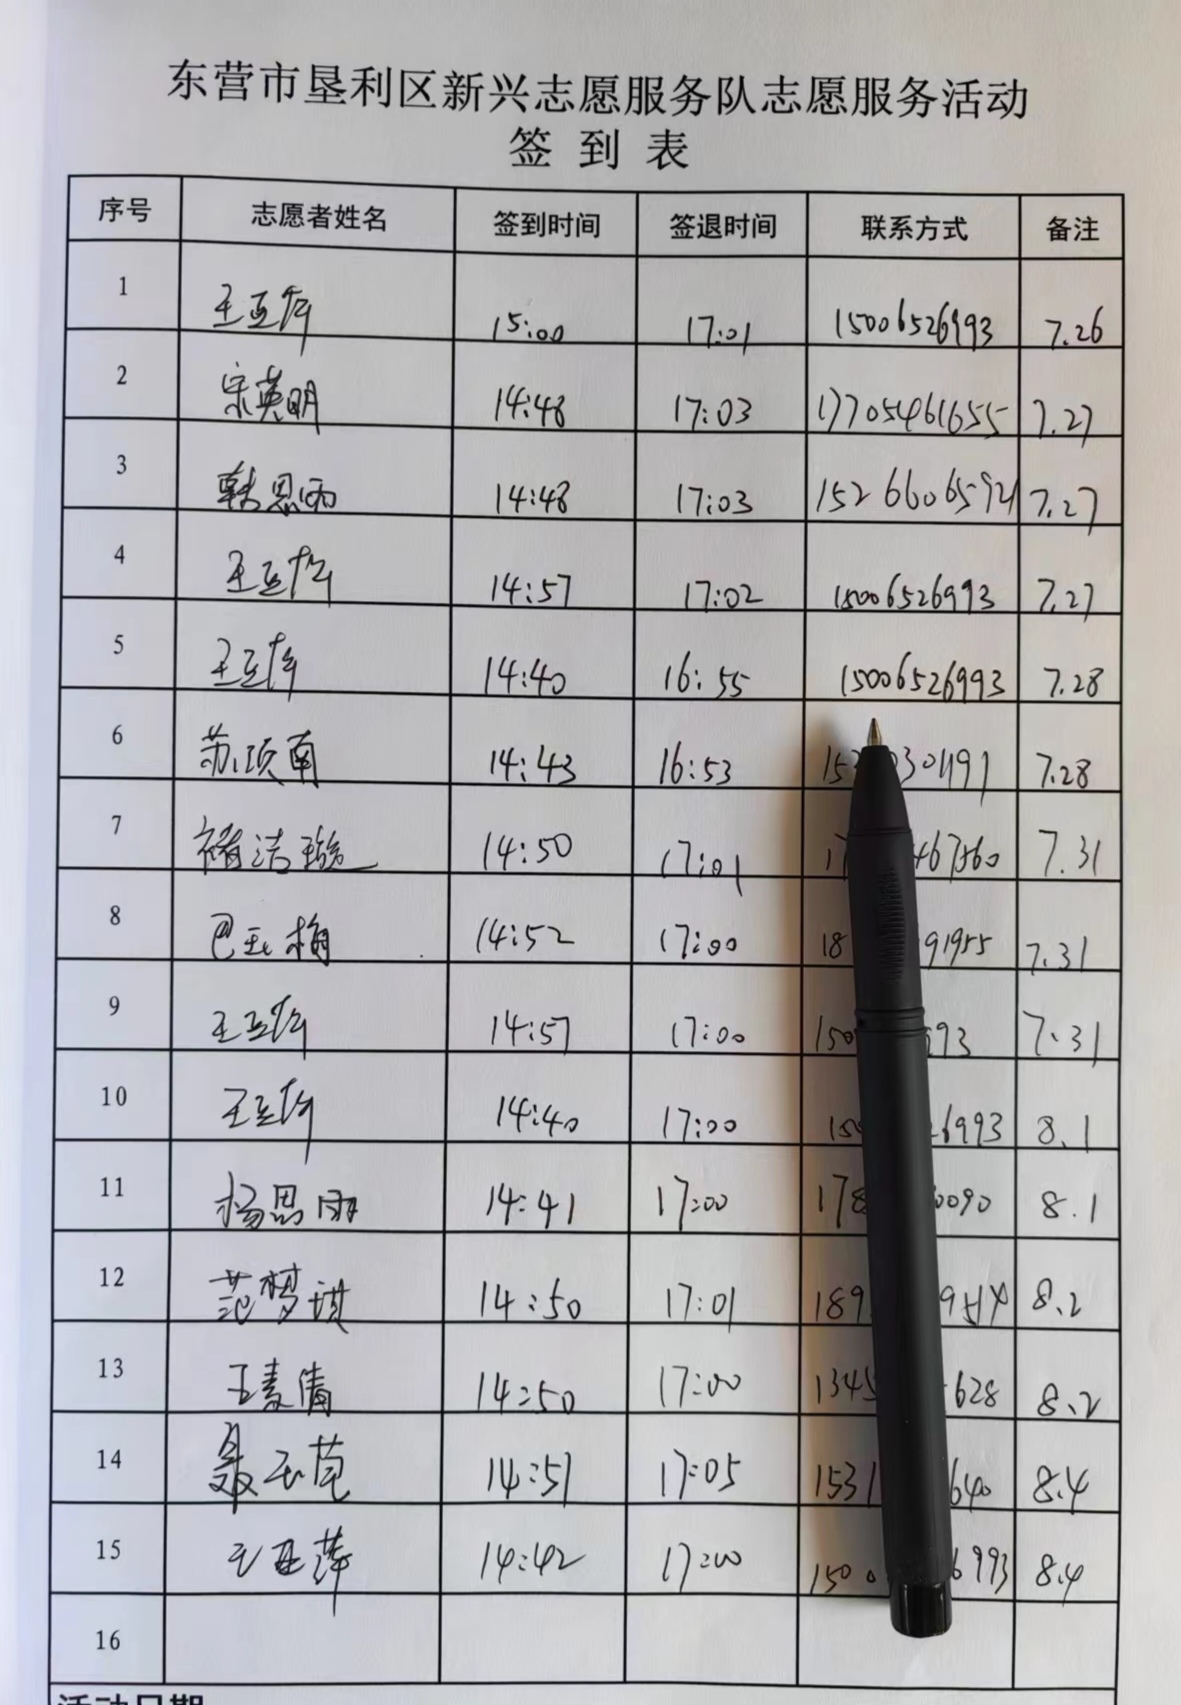 东营市垦利区新兴志愿服务队志愿服务活动
签到表
序号 志愿者姓名 签到时间 签退时间 联系方式 备注
1 王亚萍 15:00 17:01 15006526993 7.26
2 宋英明 14:48 17:03 17705461655 7.27
3 韩思雨 14:48 17:03 15266065921 7.27
4 王亚萍 14:57 17:02 15006526993 7.27
5 王亚萍 14:40 16:55 15006526993 7.28
6 苏顷南 14:43 16:53 7.28
7 褚洁璇 14:50 17:01 7.31
8 巴玉梅 14:52 17:00 18 91955 7.31
9 王亚萍 14:57 17:00 150 993 7.31
10 王亚萍 14:40 17:00 150 26993 8.1
11 杨思雨 14:41 17:00 178 0090 8.1
12 范梦琪 14:50 17:01 189 9514 8.2
13 王素倩 14:50 17:00 1345 628 8.2
14 聂玉苊 14:51 17:05 1531 640 8.4
15 王亚萍 14:42 17:00 1500 6993 8.4
16
活动日期